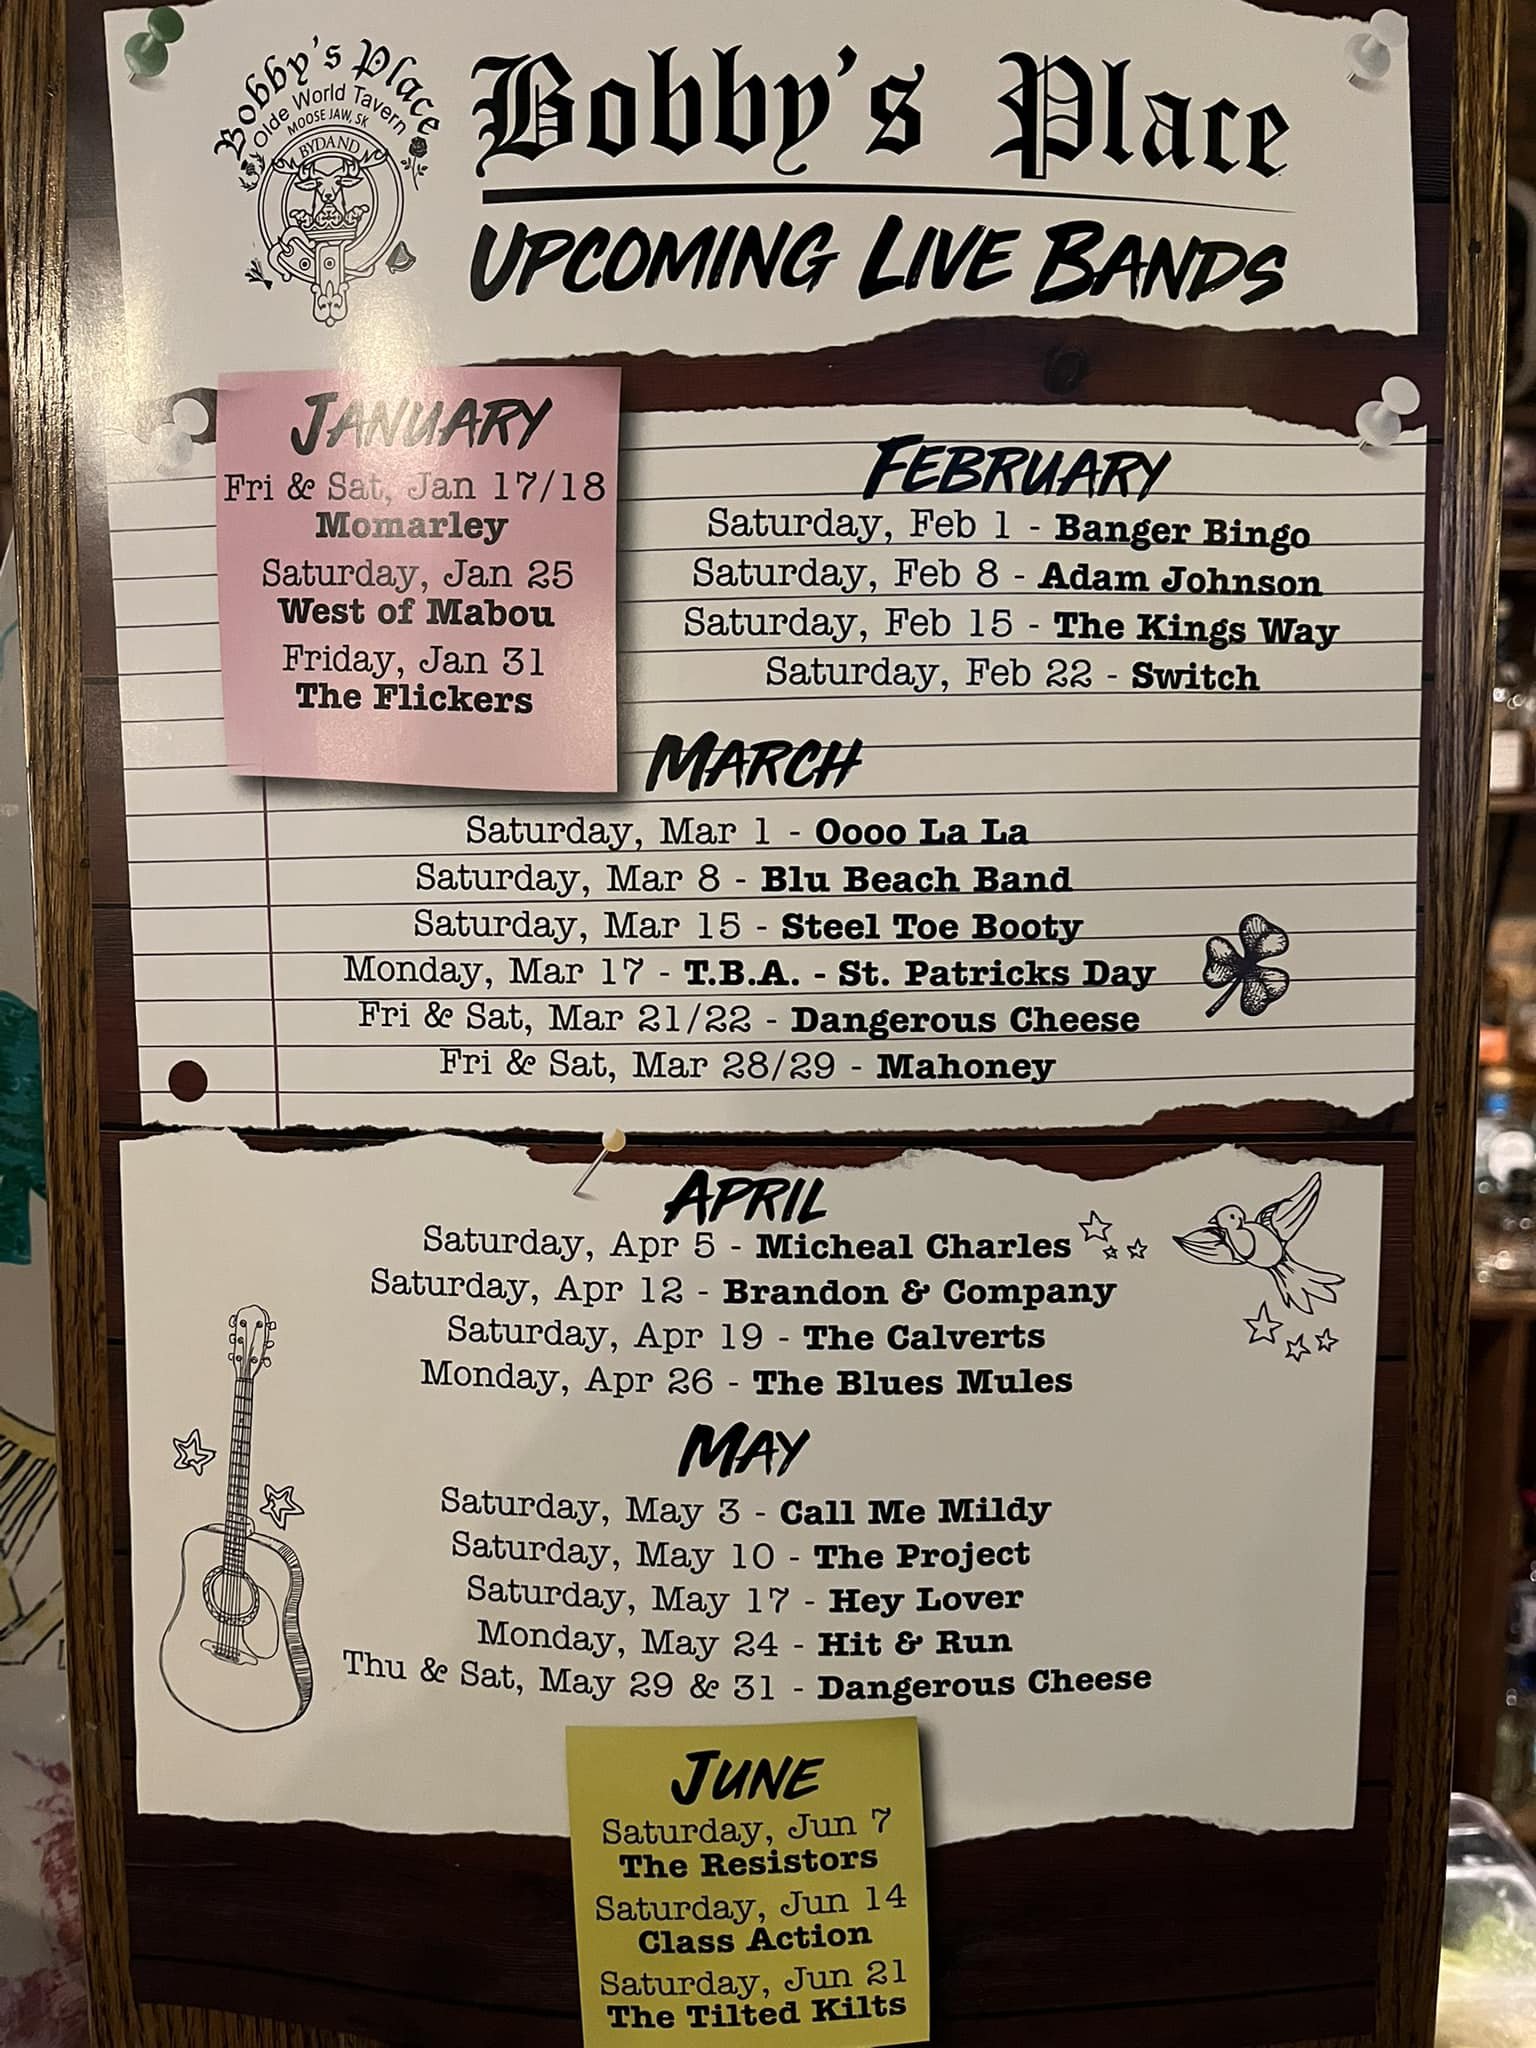 Bobby's Place
Olde World Tavern
MOOSE JAW, SK
BYDAND
Bobby's Place
UPCOMING LIVE BANDS
JANUARY
Fri & Sat, Jan 17/18
Momarley
Saturday, Jan 25
West of Mabou
Friday, Jan 31
The Flickers
FEBRUARY
Saturday, Feb 1 - Banger Bingo
Saturday, Feb 8 - Adam Johnson
Saturday, Feb 15 - The Kings Way
Saturday, Feb 22 - Switch
MARCH
Saturday, Mar 1 - Oooo La La
Saturday, Mar 8 - Blu Beach Band
Saturday, Mar 15 - Steel Toe Booty
Monday, Mar 17 - T.B.A. - St. Patricks Day
Fri & Sat, Mar 21/22 - Dangerous Cheese
Fri & Sat, Mar 28/29 - Mahoney
APRIL
Saturday, Apr 5 - Micheal Charles
Saturday, Apr 12 - Brandon & Company
Saturday, Apr 19 - The Calverts
Monday, Apr 26 - The Blues Mules
MAY
Saturday, May 3 - Call Me Mildy
Saturday, May 10 - The Project
Saturday, May 17 - Hey Lover
Monday, May 24 - Hit & Run
Thu & Sat, May 29 & 31 - Dangerous Cheese
JUNE
Saturday, Jun 7
The Resistors
Saturday, Jun 14
Class Action
Saturday, Jun 21
The Tilted Kilts